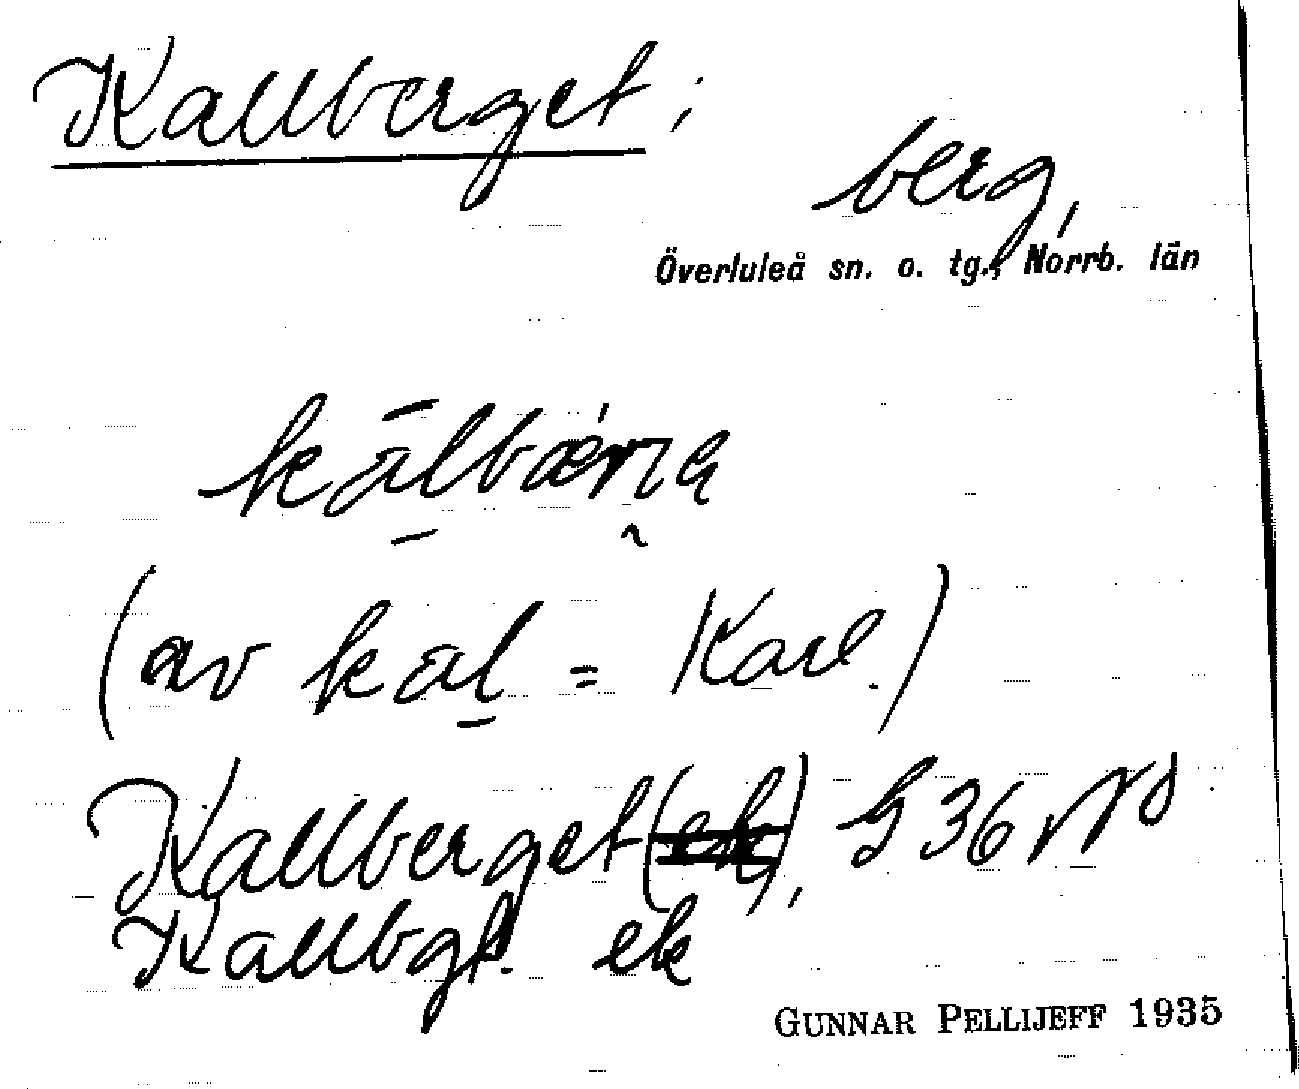 Kallberget;
berg,
Överluleå sn. o. tg., Norrb. län
kālbǽrıɢ
(av kal = Karl.)
Kallberget(ek), G 36 NO
Kallbgt. ek
GUNNAR PELLIJEFF 1935